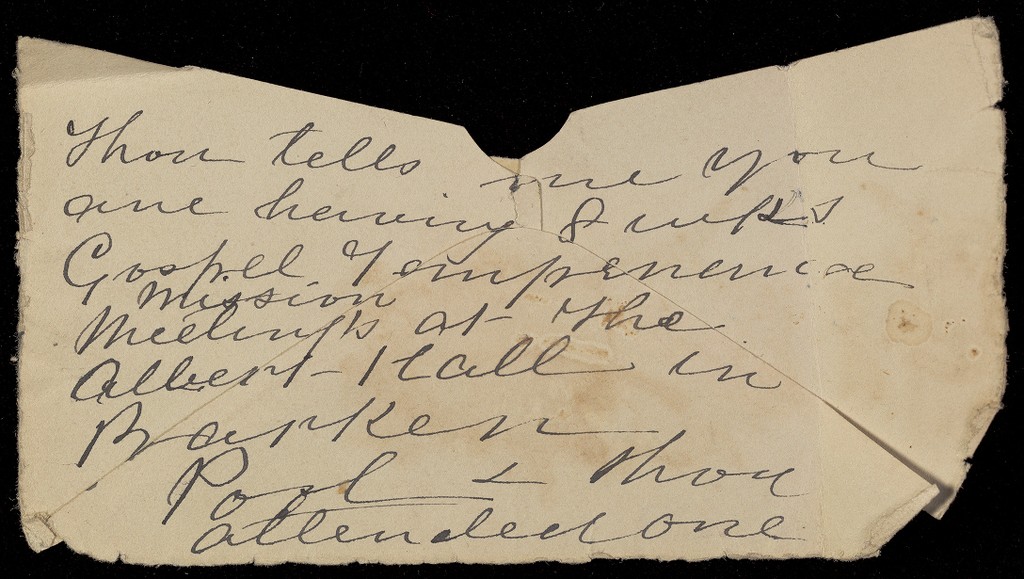 Thou tells me you
are having 8 wks
Gospel Temperence
Mission
Meetings at the
Albert Hall in
Barker
Pool & thou
attended one